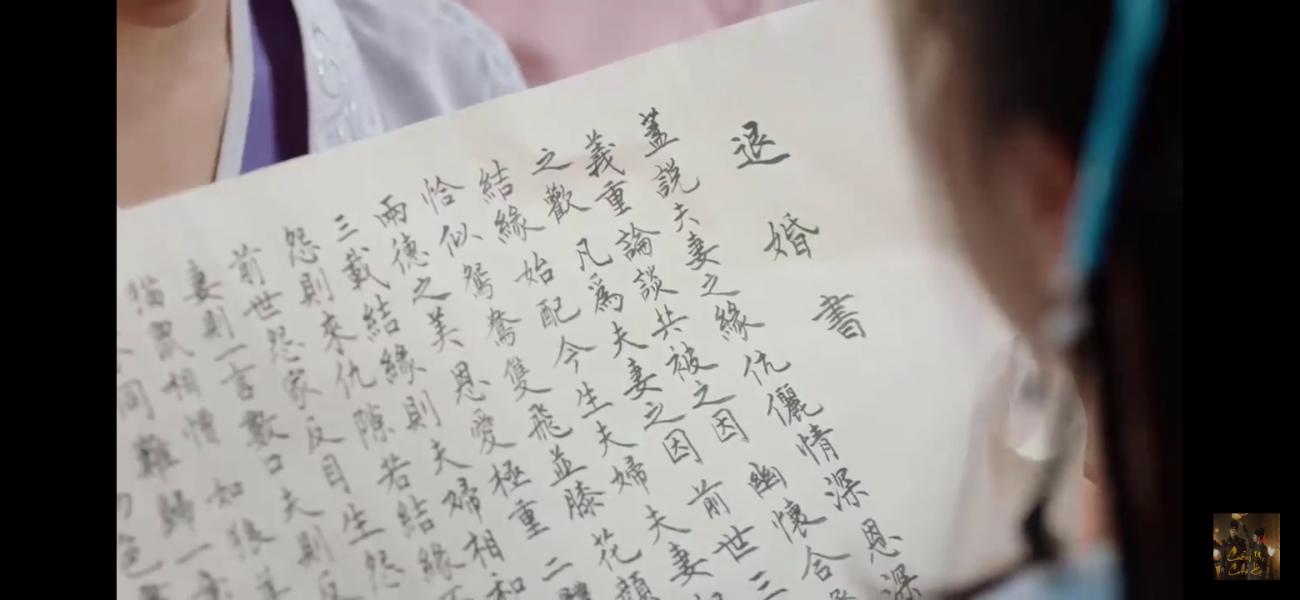 退婚書
蓋說夫妻之緣伉儷情深恩深
義重論談共被之因幽懷合
之歡凡爲夫妻之因前世三
結緣始配今生夫婦夫妻
恰似鴛鴦雙飛並膝花顏
兩德之美恩愛極重二體
三載結緣則夫婦相和
怨則來仇隙若結緣
前世怨家反目生怨
妻則一言數口夫則反
貓鼠相憎如狼羊
同難歸一